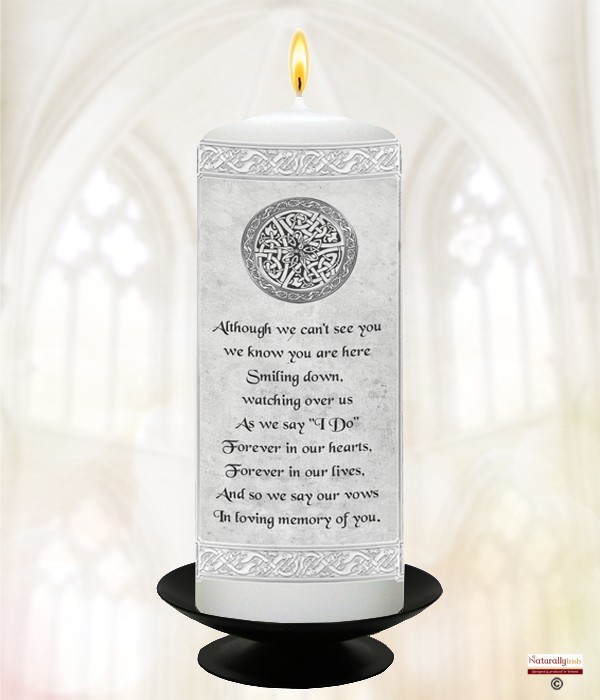 Although we can't see you
we know you are here
Smiling down,
watching over us
As we say "I Do"
Forever in our hearts,
Forever in our lives,
And so we say our vows
In loving memory of you.
NaturallyIrish
designed & produced in Ireland
©